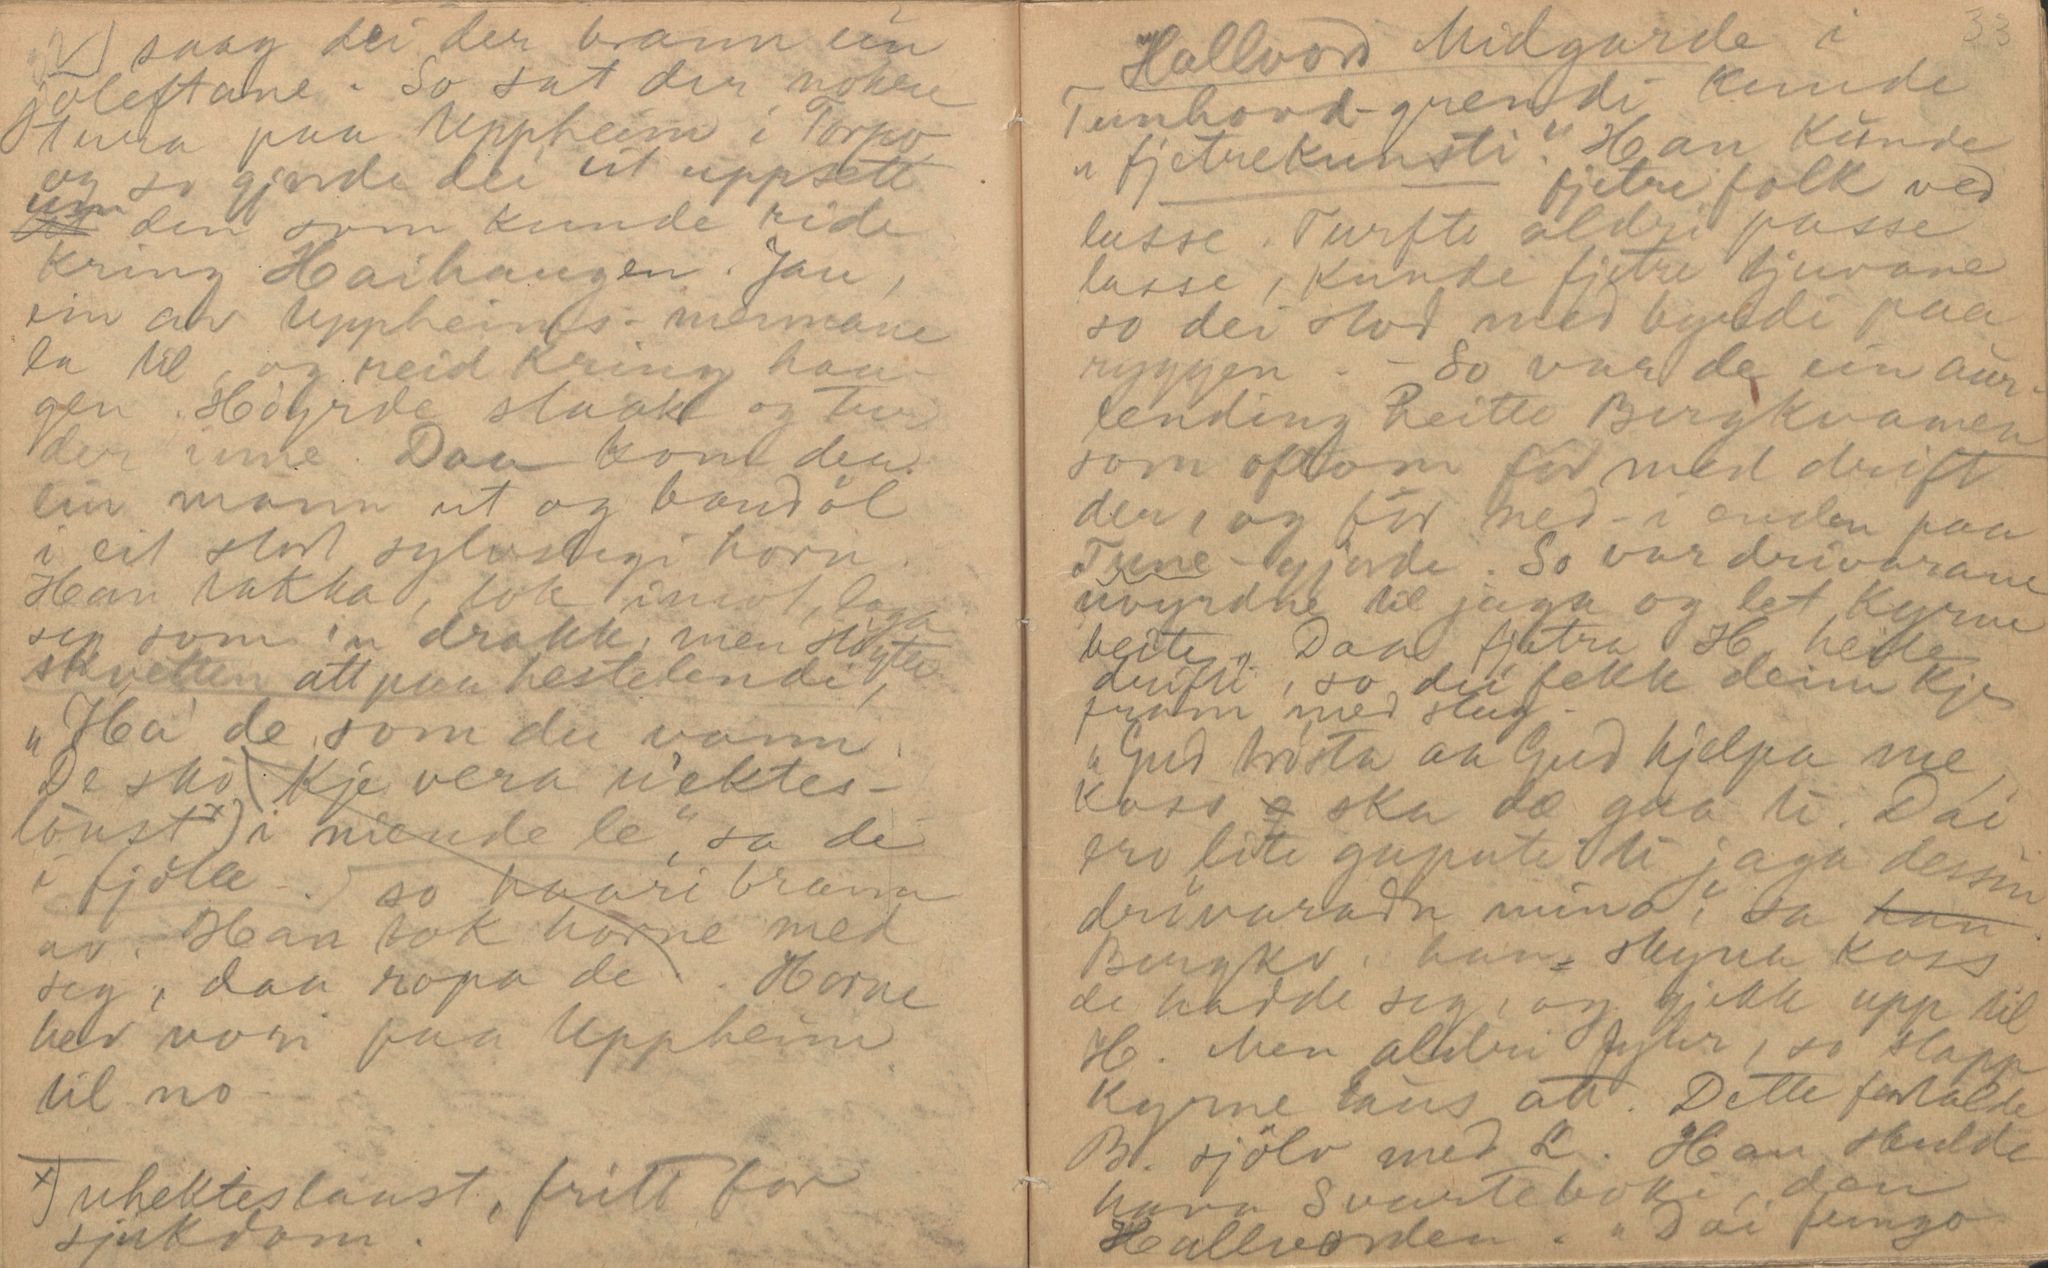 V) saag dei der brann ein
joleftane. So sat der nokre
stura paa Uppheim i Torpo,
og so gjorde dei eit uppsett
um den som kunde ride
kring Haihaugen. Jau,
ein av Uppheims-mennane
la til, og reid kring hau-
gen. Höyrde staak og tur
der inne. Daa kom der
ein mann ut og baud öl
i eit stort sylvslegi horn.
Han takka, tok imot, laga
seg som 'n drakk, men slöngte
skvetten att paa hestelendi,
"Ha' de som du vann.
De sko kje vera u'ektes-
laust x) i niende le", sa de
i fjölle. so haari brann
av. Han tok horne med
seg, daa ropa de. Horne
hev vori paa Uppheim
til no
x) uhekteslaust, fritt for
sjukdom.
33
Hallvord Midgarde i
Tunhovd-grendi kunde
"fjetrekunsti". Han kunde
fjetre folk ved
lasse. Turfte aldri passe
lasse, kunde fjetre tjuvane
so dei stod med byrdi paa
ryggen. - So var de ein aur-
lending heitte Bergkvamen
som oftom for med drift
der, og for ned-i enden paa
Tune-gjorde. So var drivarane
uvyrdne til jaga og let kyrne
beite. Daa fjetra H. heile
drifti, so dei fekk deim kje
fram med slag.
"Gud trösta aa Gud hjelpa me,
koss ska dæ gaa ti. Dai
ero lite gapute ti jaga dessin
drivaradn mino", sa han
Bergkv. han skyna koss
de hadde seg, og gjekk upp til
H. Men aldri fyrr, so slapp
kyrne laus att. Dette fortalde
B. sjölv med L. Han skulde
hava Svarteboki, den
Hallvorden. "Dai fungo